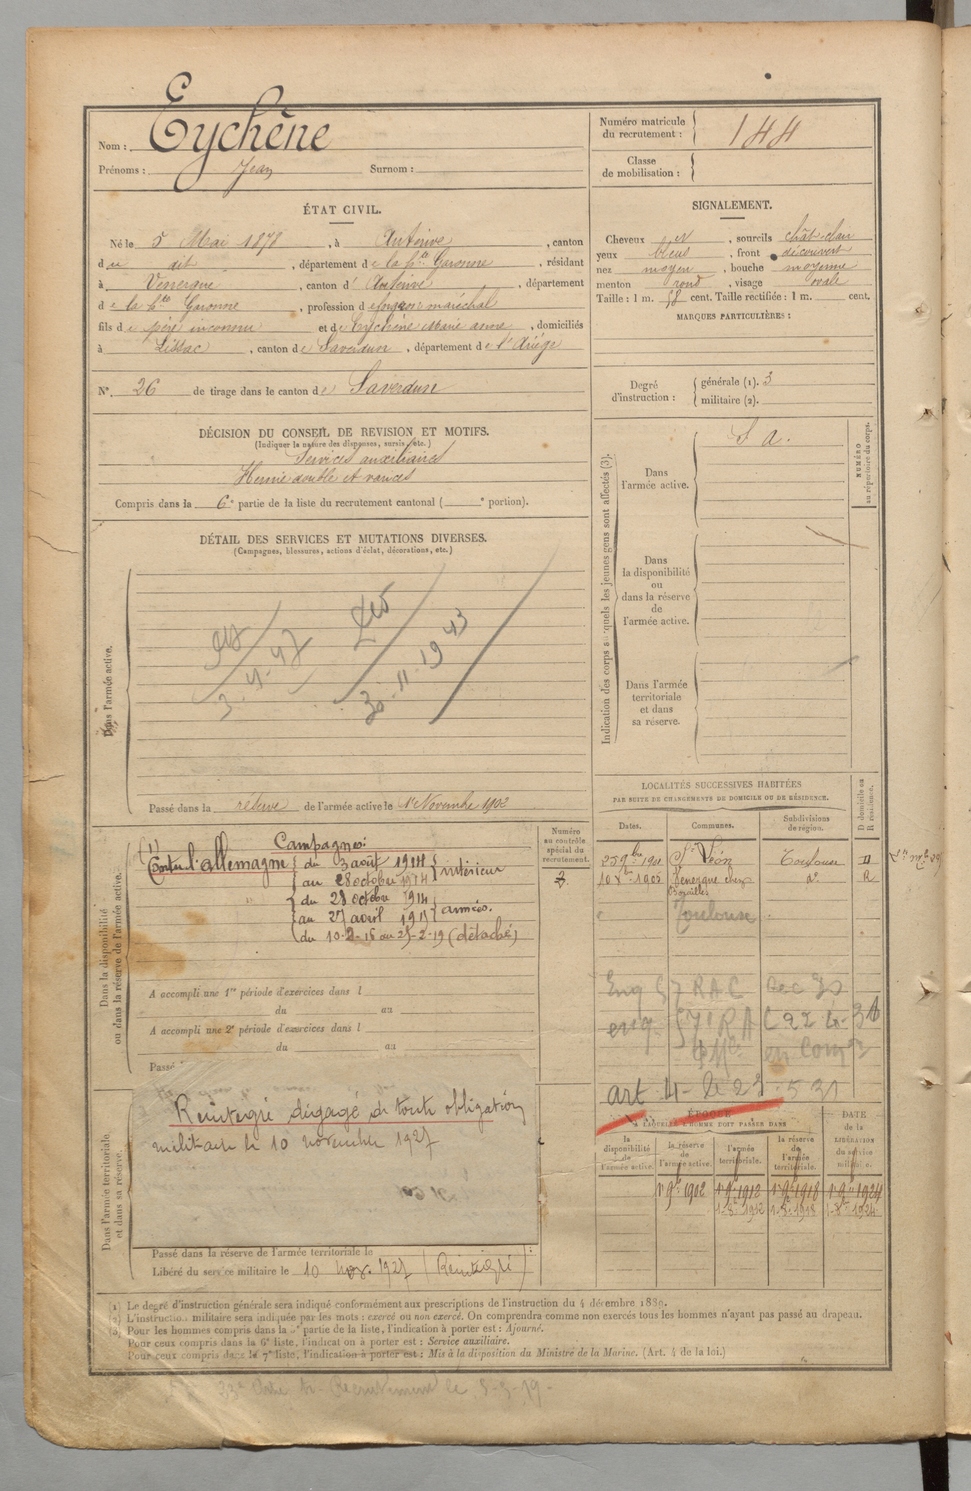 Nom : Eychène
Prénoms : Jean Surnom :
ÉTAT CIVIL.
Né le 5 Mai 1878, à Auterive, canton
du dit, département de la Hte Garonne, résidant
à Venerque, canton d'Auterive, département
de la Hte Garonne, profession de forgeron maréchal
fils de père inconnu et de Eychène Marie, domiciliés
à Lissac, canton de Saverdun, département de l'Ariège
N° 26 de tirage dans le canton de Saverdun
DÉCISION DU CONSEIL DE REVISION ET MOTIFS.
(Indiquer la nature des dispenses, sursis, etc.)
Services auxiliaires
Hernie double et varices
Compris dans la 6e partie de la liste du recrutement cantonal ( e portion).
DÉTAIL DES SERVICES ET MUTATIONS DIVERSES.
(Campagnes, blessures, actions d'éclat, décorations, etc.)
Dans l'armée active.
30.11.1943
Passé dans la réserve de l'armée active le 1er Novembre 1902
Dans la disponibilité
ou dans la réserve de l'armée active.
(1) Campagnes:
Contre l'allemagne du 3 août 1914
au 28 octobre 1914 intérieur
du 28 octobre 1914
au 27 avril 1915 armées.
(détaché)
Numéro
au contrôle
spécial du
recrutement.
A accompli une 1re période d'exercices dans l
du au
A accompli une 2e période d'exercices dans l
du au
Passé
Dans l'armée territoriale
et dans sa réserve.
Réintégré dégagé de toute obligation
militaire le 10 novembre 1927
Passé dans la réserve de l'armée territoriale le
Libéré du service militaire le 10 nov. 1927 (Réintégré)
Numéro matricule
du recrutement : 144
Classe
de mobilisation :
SIGNALEMENT.
Cheveux et, sourcils chât-clair
yeux bleus, front découvert
nez moyen, bouche moyenne
menton rond, visage ovale
Taille : 1 m. 58 cent. Taille rectifiée : 1 m. cent.
MARQUES PARTICULIÈRES :
Degré
d'instruction :
générale (1). 3
militaire (2).
Indication des corps auxquels les jeunes gens sont affectés (3).
Dans
l'armée active.
S A.
NUMÉRO
au répertoire du corps.
Dans
la disponibilité
ou
dans la réserve
de
l'armée active.
Dans l'armée
territoriale
et dans
sa réserve.
LOCALITÉS SUCCESSIVES HABITÉES
PAR SUITE DE CHANGEMENTS DE DOMICILE OU DE RÉSIDENCE.
Dates. Communes. Subdivisions
de région.
D domicile ou
R résidence.
St Léon Toulouse D
Venerque chez do R
Toulouse
art 4
ÉPOQUE
A LAQUELLE L'HOMME DOIT PASSER DANS
la
disponibilité
de
l'armée active.
la réserve
de
l'armée active.
l'armée
territoriale.
la réserve
de
l'armée
territoriale.
DATE
de la
LIBÉRATION
du service
militaire.
1er 9bre 1902 1er 9bre 1912 1er 9bre 1918 1er 9bre 1924
(1) Le degré d'instruction générale sera indiqué conformément aux prescriptions de l'instruction du 4 décembre 1889.
(2) L'instruction militaire sera indiquée par les mots : exercé ou non exercé. On comprendra comme non exercés tous les hommes n'ayant pas passé au drapeau.
(3) Pour les hommes compris dans la 5e partie de la liste, l'indication à porter est : Ajourné.
Pour ceux compris dans la 6e liste, l'indication à porter est : Service auxiliaire.
Pour ceux compris dans la 7e liste, l'indication à porter est : Mis à la disposition du Ministre de la Marine. (Art. 4 de la loi.)